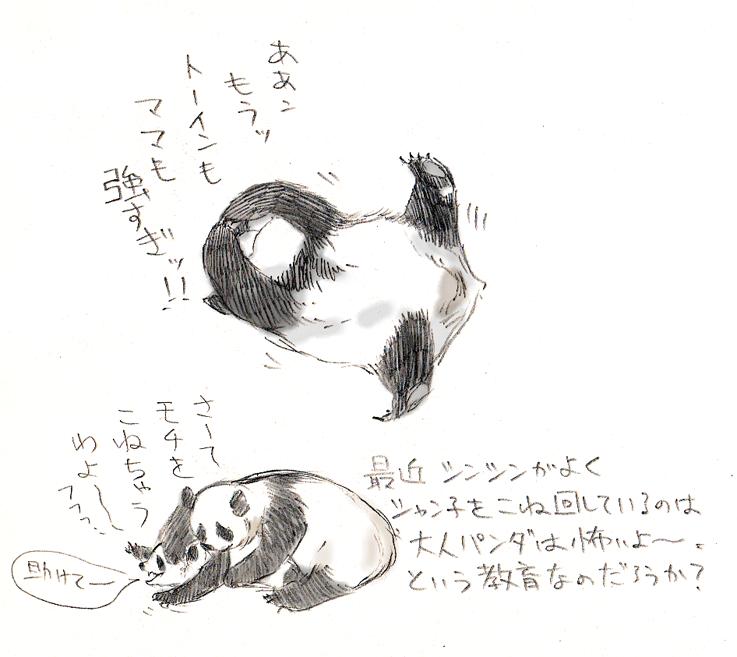 ああン
もうッ
トーインも
ママも
強すぎッ!!
さーて
モチを
こねちゃう
わよ〜〜
フフフっ
助けてー
最近シンシンがよく
シャン子をこね回しているのは
大人パンダは怖いよ〜。
という教育なのだろうか?